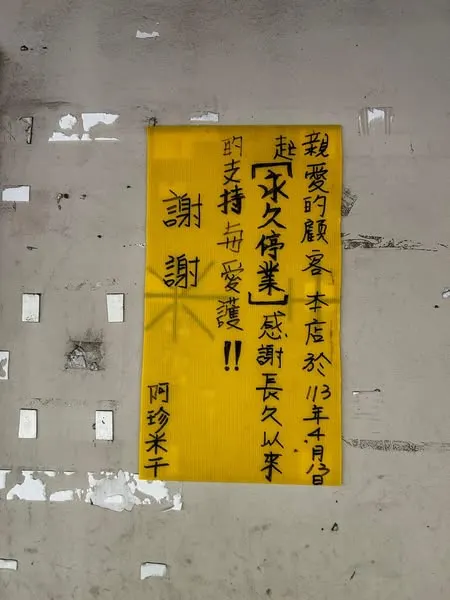 親愛的顧客本店於113年4月13日
起【永久停業】感謝長久以來
的支持与愛護!!
謝謝
阿珍米干